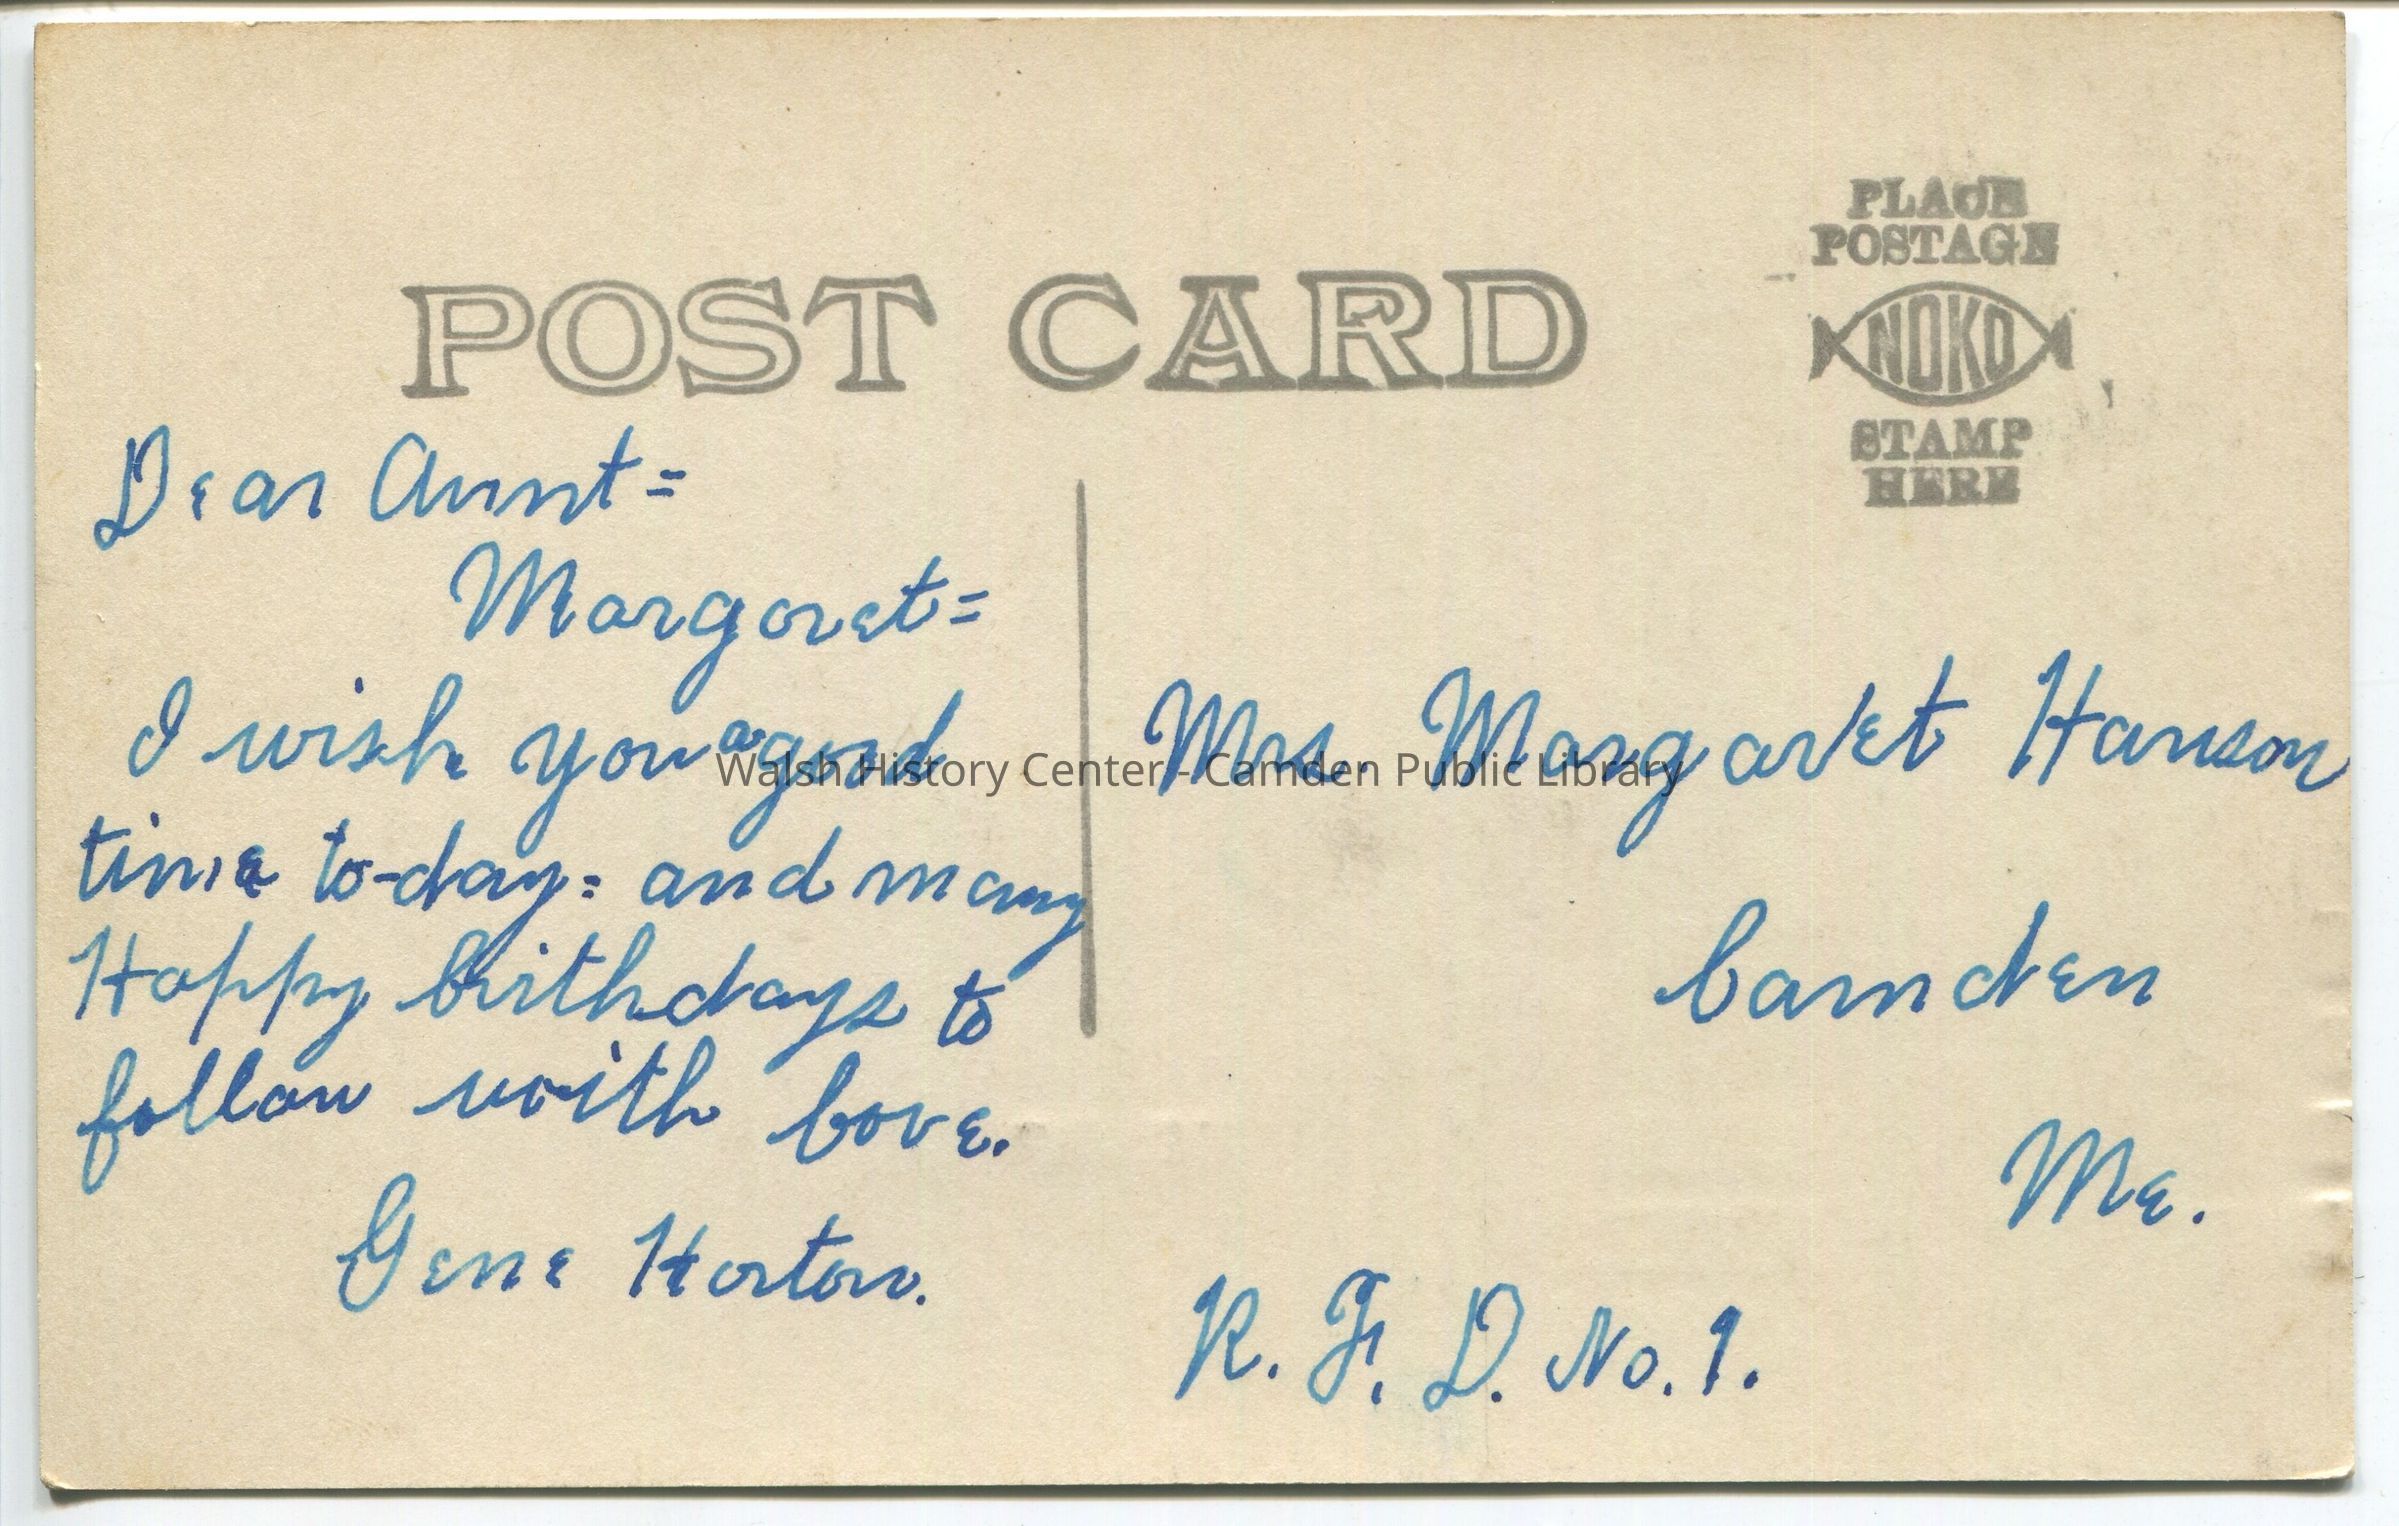 POST CARD
PLACE
POSTAGE
NOKO
STAMP
HERE
Dear Aunt=
Margaret=
I wish you a good
time to-day= and many
Happy birthdays to
follow with love.
Gene Horton.
Mrs. Margaret Hanson
Camden
Me.
R. F. D. No. 1.
Walsh History Center - Camden Public Library